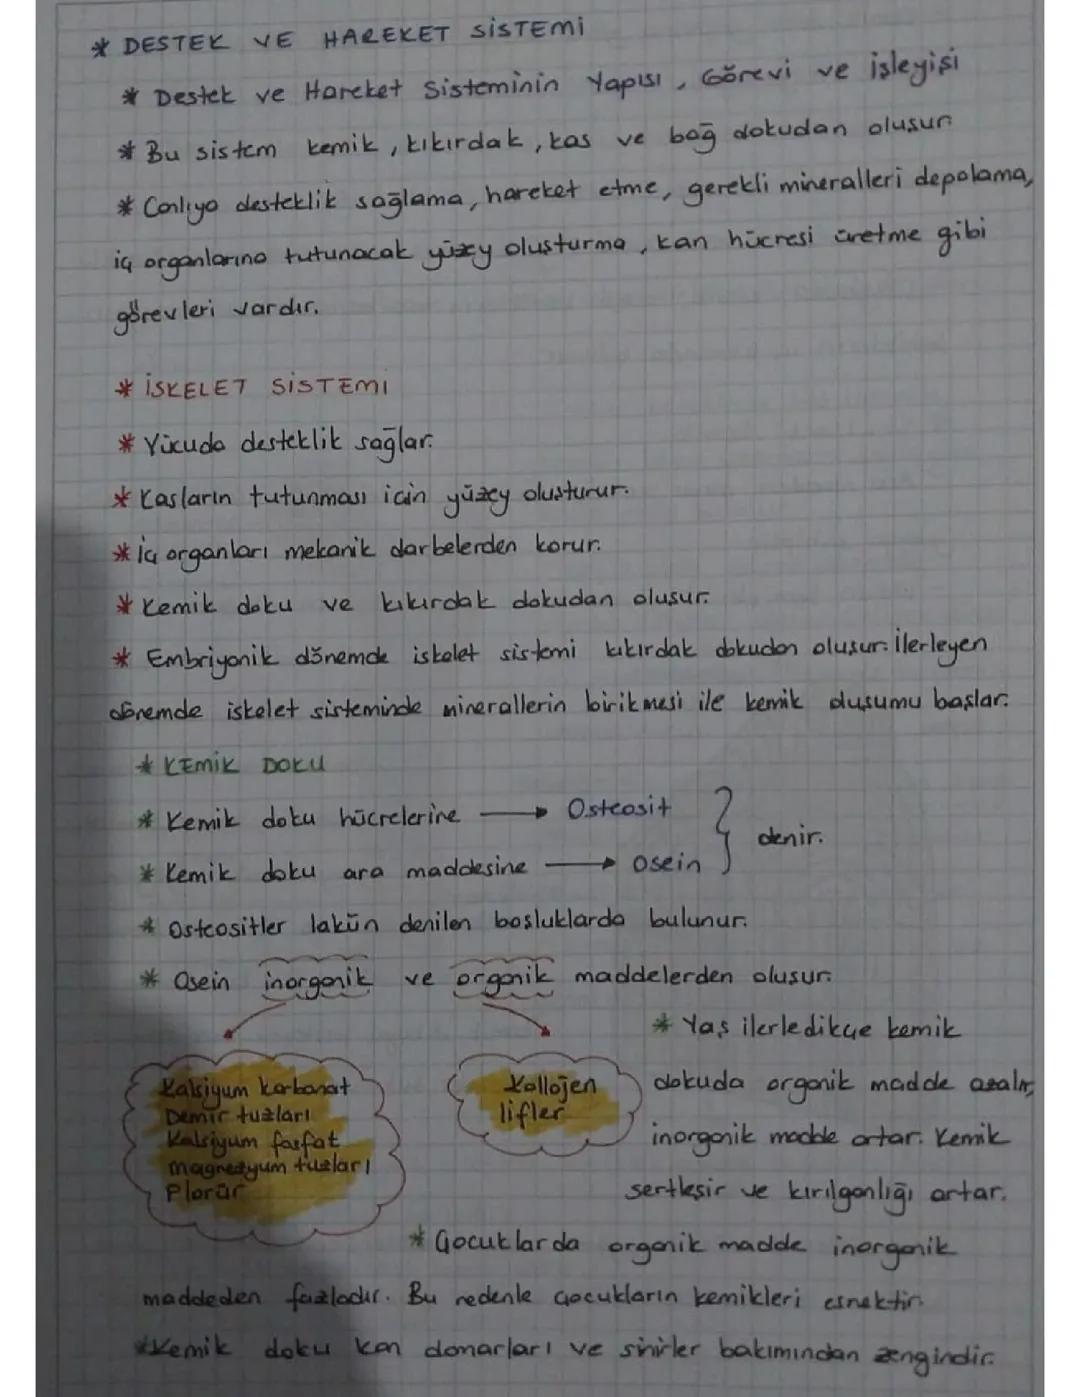 * DESTEK VE HAREKET SİSTEMİ
* Destek ve Hareket Sisteminin Yapısı, Görevi ve işleyişi
* Bu sistem kemik, kıkırdak, kas ve bağ dokudan oluşur.
* Canlıya desteklik sağlama, hareket etme, gerekli mineralleri depolama,
iç organlarına tutunacak yüzey oluşturma, kan hücresi üretme gibi
görevleri vardır.
* İSKELET SİSTEMİ
* Vücuda desteklik sağlar.
* Kasların tutunması için yüzey oluşturur.
* İç organları mekanik darbelerden korur.
* Kemik doku ve kıkırdak dokudan oluşur.
* Embriyonik dönemde iskelet sistemi kıkırdak dokudan oluşur. İlerleyen
dönemde iskelet sisteminde minerallerin birikmesi ile kemik oluşumu başlar.
* KEMİK DOKU
* Kemik doku hücrelerine → Osteosit
* Kemik doku ara maddesine → Osein } denir.
* Osteositler lakün denilen boşluklarda bulunur.
* Osein inorganik ve organik maddelerden oluşur.
Kalsiyum karbonat
Demir tuzları
Kalsiyum fosfat
magnezyum tuzları
Plorür
Kollojen
lifler
* Yaş ilerledikçe kemik
dokuda organik madde azalır,
inorganik madde artar. Kemik
sertleşir ve kırılganlığı artar.
* Çocuklarda organik madde inorganik
maddeden fazladır. Bu nedenle çocukların kemikleri esnektir.
* Kemik doku kan damarları ve sinirler bakımından zengindir.